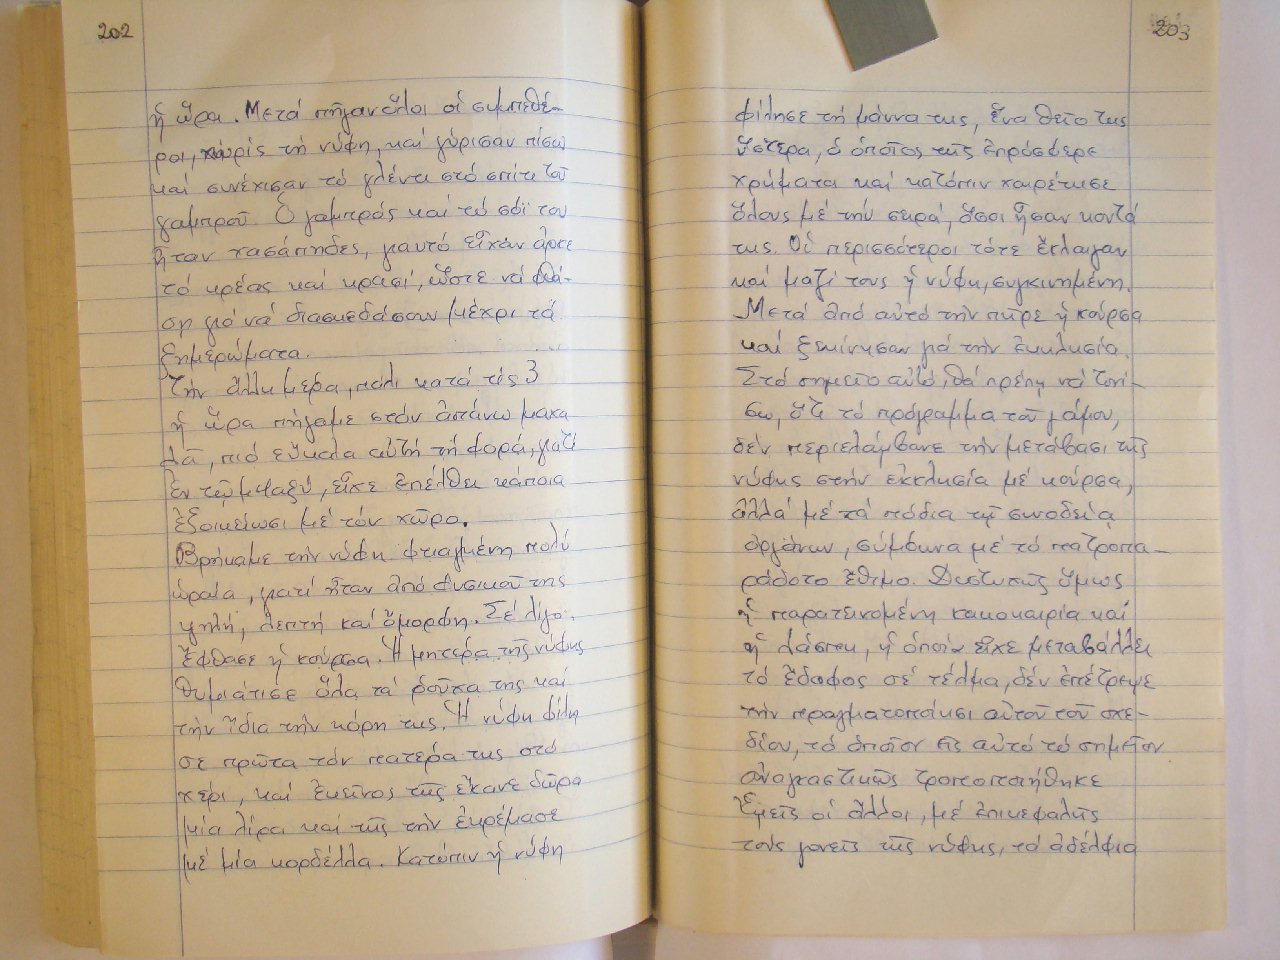 202
ἡ ὥρα. Μετά πῆγαν ὅλοι οἱ συμπεθέ-
ροι, χωρίς τή νύφη, καί γύρισαν πίσω
καί συνέχισαν τό γλέντι στό σπίτι τοῦ
γαμπροῦ. Ὁ γαμπρός καί τό σόϊ του
ἦταν χασάπηδες, γιαυτό εἶχαν
τό κρέας καί κρασί, ὥστε νά φθά-
ση γιά νά διασκεδάσουν μέχρι τά
ξημερώματα.
Τήν ἄλλη μέρα, πάλι κατά τίς 3
ἡ ὥρα πήγαμε στόν ἀπάνω μαχα
λᾶ, πιό εὔκολα αὐτή τή φορά, γιατί
ἐν τῷ μεταξύ, εἶχε ἐπέλθει κάποια
ἐξοικείωσι μέ τόν χῶρο.
Βρήκαμε τήν νύφη φτιαγμένη πολύ
ὡραῖα, γιατί ἦταν ἀπό φυσικοῦ της
ψηλή, λεπτή καί ὄμορφη. Σέ λίγο
ἔφθασε ἡ κούρσα. Ἡ μητέρα τῆς νύφης
θυμιάτισε ὅλα τά ροῦχα της καί
τήν ἴδια τήν κόρη της. Ἡ νύφη φίλη
σε πρῶτα τόν πατέρα της στό
χέρι, καί ἐκεῖνος τῆς ἔκανε δῶρο
μία λίρα καί τῆς τήν ἐκρέμασε
μέ μία κορδέλλα. Κατόπιν ἡ νύφη
203
φίλησε τή μάννα της, ἕνα θεῖο της
ὕστερα, ὁ ὁποῖος τῆς ἐπρόσφερε
χρήματα καί κατόπιν χαιρέτησε
ὅλους μέ τήν σειρά, ὅσοι ἦσαν κοντά
της. Οἱ περισσότεροι τότε ἔκλαιγαν
καί μαζί τους ἡ νύφη, συγκινημένη.
Μετά ἀπό αὐτό τήν πῆρε ἡ κούρσα
καί ξεκίνησαν γιά τήν ἐκκλησία.
Στό σημεῖο αὐτό, θά πρέπῃ νά τονί-
σω, ὅτι τό πρόγραμμα τοῦ γάμου,
δέν περιελάμβανε τήν μετάβασι τῆς
νύφης στήν ἐκκλησία μέ κούρσα,
ἀλλά μέ τά πόδια τῇ συνοδείᾳ
ὀργάνων, σύμφωνα μέ τό πατροπα-
ράδοτο ἔθιμο. Δυστυχῶς ὅμως
ἡ παρατεινομένη κακοκαιρία καί
ἡ λάσπη, ἡ ὁποία εἶχε μεταβάλλει
τό ἔδαφος σέ τέλμα, δέν ἐπέτρεψε
τήν πραγματοποίησι αὐτοῦ τοῦ σχε-
δίου, τό ὁποῖον εἰς αὐτό τό σημεῖον
ἀναγκαστικῶς τροποποιήθηκε
Ἐμεῖς οἱ ἄλλοι, μέ ἐπικεφαλῆς
τούς γονεῖς τῆς νύφης, τά ἀδέλφια